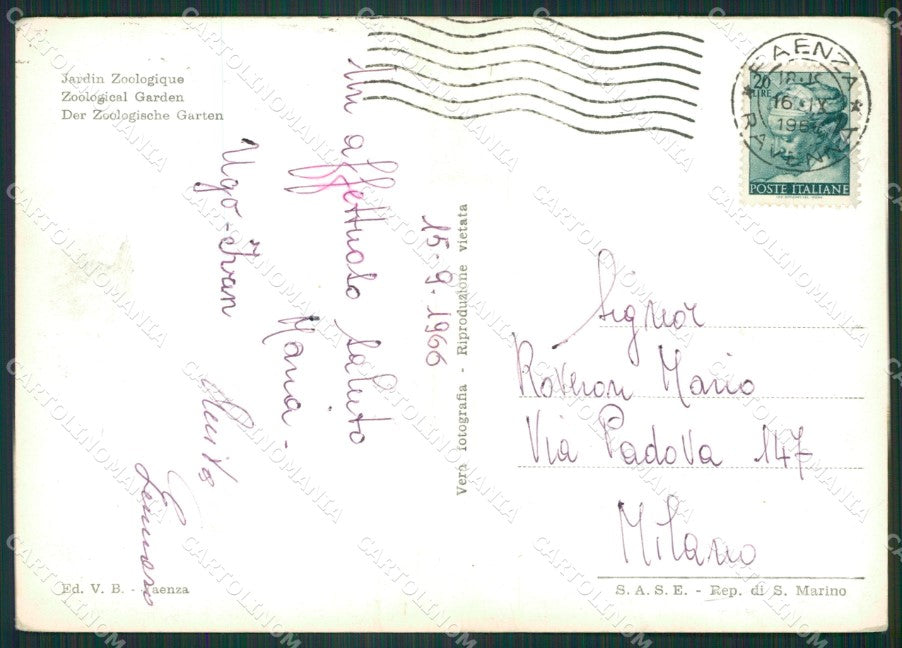 Jardin Zoologique
Zoological Garden
Der Zoologische Garten
Un affettuoso saluto
Ugo - Ivan
Maria -
15.9.1966
Vera fotografia - Riproduzione vietata
20
LIRE
POSTE ITALIANE
FAENZA
16 . IX
RAVENNA
Signor
Roveron Mario
Via Padova 147
Milano
Ed. V. B. - Faenza
S. A. S. E. - Rep. di S. Marino
CARTOLINOMANIA